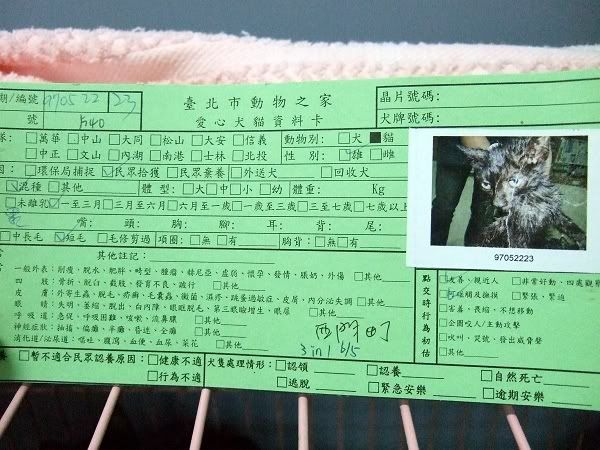 期/編號 970522 23 臺北市動物之家 晶片號碼:
號 F40 愛心犬貓資料卡 犬牌號碼:
隊: □萬華 □中山 □大同 □松山 □大安 □信義 動物別: □犬 ■貓
□中正 □文山 □內湖 □南港 □士林 □北投 性別: □雄 □雌
因: □環保局捕捉 ☑民眾拾獲 □民眾棄養 □外送犬 □回收犬
☑混種 □其他 體型: □大 □中 □小 □幼 體重: Kg
□未離乳 ☑一至三月 □三月至六月 □六月至一歲 □一歲至三歲 □三至七歲 □七歲以上
嘴: 頭: 胸: 腳: 耳: 背: 尾:
□中長毛 ☑短毛 □毛修剪過 項圈: □無 □有 胸背: □無 □有
97052223
其他註記:
一般外表: 削瘦、脫水、肥胖、畸型、腫瘤、赫尼亞、虛弱、懷孕、發情、脹奶、外傷 □其他
四肢: 骨折、脫臼、截肢、發育不良、跛行 □其他
皮膚: 外寄生蟲、脫毛、疥癬、毛囊蟲、黴菌、濕疹、跳蚤過敏症、皮屑、內分泌失調 □其他
眼睛: 失明、萎縮、脫出、白內障、眼瞼脫毛、第三眼瞼增生、眼屎 □其他
呼吸道: 急促、呼吸困難、咳嗽、流鼻膿 □其他
神經症狀: 抽搐、偏癱、半癱、昏迷、全癱 □其他
消化道/泌尿道: 嘔吐、腹瀉、血便、血尿、菜花 □其他
西門町
3 in 1 6/5
點交時行為初估
□友善、親近人 □非常好動、四處觀察
□可接觸及撫摸 □緊張、緊迫
□害羞、畏縮、不想移動
□企圖咬人/主動攻擊
□吠叫、哭號、發出威脅聲
□其他
暫不適合民眾認養原因: □健康不適 □行為不適
犬隻處理情形: □認領 □認養 □自然死亡
□逃脫 □緊急安樂 □逾期安樂